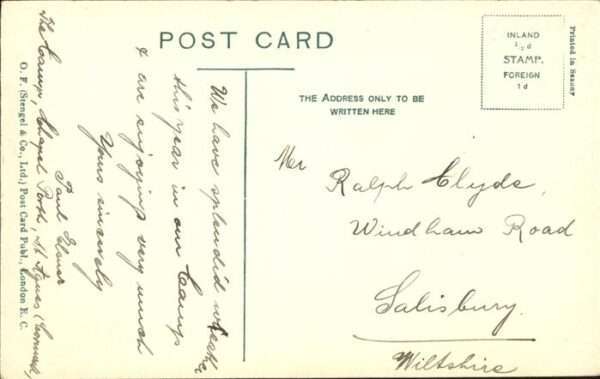 POST CARD
INLAND
½d
STAMP.
FOREIGN
1d
Printed in Saxony
THE ADDRESS ONLY TO BE
WRITTEN HERE
We have splendid weather
this year in our Camp
& are enjoying very much
Yours sincerely
Paul
The Camp, Chapel Porth, St Agnes (Cornwall)
O. F. (Stengel & Co., Ltd.) Post Card Publ., London E. C.
Mr
Ralph Clyde,
Windham Road
Salisbury.
Wiltshire